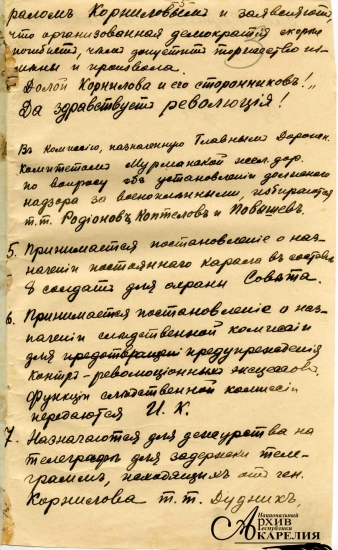 ралом Корниловым и заявляют,
что организованная демократия скорѣе
погибнет, чѣм допустит торжество
и произвола.
Долой Корнилова и его сторонниковъ!„
Да здравствует революція!
В Комиссію, назначенную Главным Дорожн.
Комитетом Мурманской жел. дор.
по вопросу объ установленіи должного
надзора за военноплѣнными, избираются
т.т. Родіонов, Коптелов и Повышев.
5. Принимается постановленіе о наз-
наченіи постояннаго караула в составѣ
8 солдат для охраны Совѣта.
6. Принимается постановленіе о наз-
наченіи слѣдственной комиссіи
для предупрежденія
контр-революціонных эксцессов.
Функціи слѣдственной комиссіи
передаются И. К.
7. Назначаются для дежурства на
телеграф для задержки теле-
грамм, находящихся от ген.
Корнилова т.т. Дудник,
Национальный
Архив
Республики
КАРЕЛИЯ